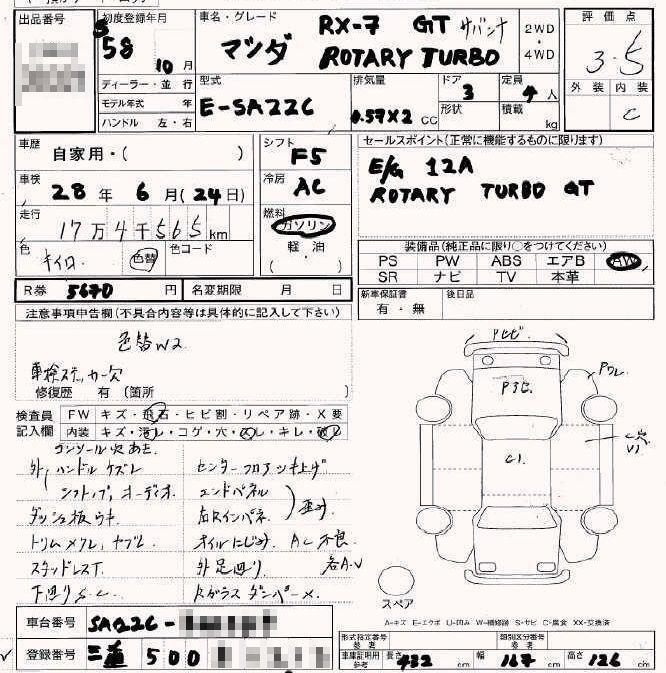 出品番号
初度登録年月
S58 10月
ディーラー・並行
モデル年式 年
ハンドル 左・右
車名・グレード
マツダ RX-7 GT サバンナ
ROTARY TURBO
2WD・4WD
型式
E-SA22C
排気量
0.57×2 CC
ドア
3
形状
定員
4人
積載
kg
評価点
3.5
外装 内装
C
車歴
自家用・( )
シフト
F5
車検
28年 6月(24日)
冷房
AC
走行
17万4千565km
燃料
ガソリン
軽・油
( )
色
キイロ
色替
色コード
R券 5670円
名変期限 月 日
セールスポイント(正常に機能するものに限ります)
E/G 12A
ROTARY TURBO GT
装備品(純正品に限り○をつけてください)
PS PW ABS エアB AW
SR ナビ TV 本革
新車保証書
有・無
後日品
注意事項申告欄(不具合内容等は具体的に記入して下さい)
色替W2
車検ステッカー欠
修復歴 有 (箇所
検査員
記入欄
FW キズ・飛石・ヒビ割・リペア跡・X要
内装 キズ・汚れ・コゲ・穴・スレ・キレ・破レ
コンソール穴あき
外 ハンドル ケズレ
シフトノブ、オーディオ
ダッシュ板ウキ
トリムメクレ、ヤブレ
スタッドレスT
下回りS.C
センターフロアツキ上げ
エンドパネル
右Rインパネ
歪み
オイルにじみ AC不良
外足回り 各A.V
Rガラスダンパー×
Pビビ
P3ビ
Pワレ
C1
C穴
V1
スペア
A=キズ E=エクボ U=凹み W=補修跡 S=サビ C=腐食 XX=交換済
車台番号 SA22C-
登録番号 三重 500
形式指定番号
参考
類別区分番号
参考
車庫証明用
参考
長さ 432 cm 幅 167 cm 高さ 126 cm